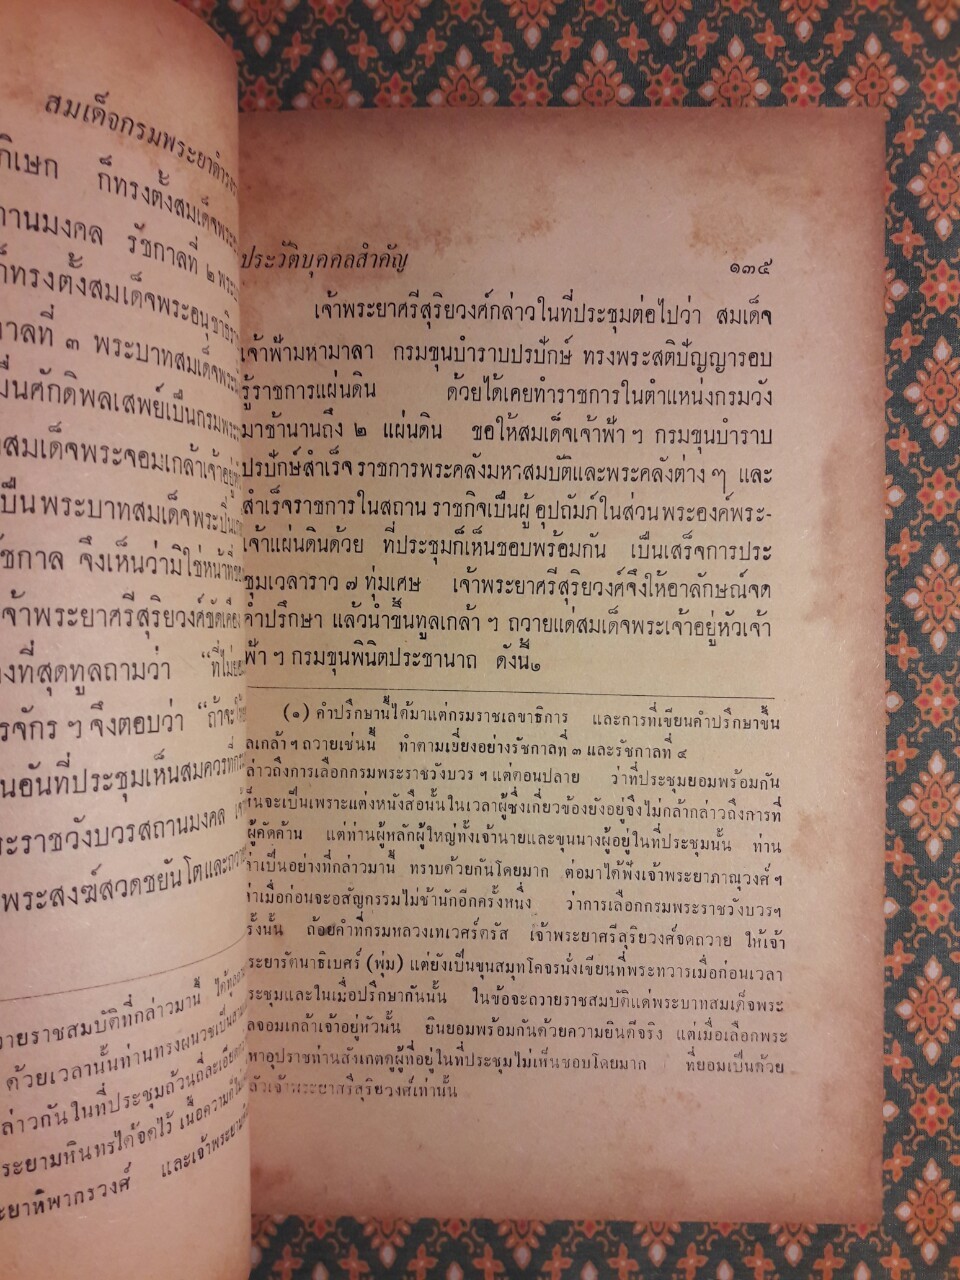 สมเด็จกรมพระยาดำรง
ภิเษก ก็ทรงตั้งสมเด็จพระ
านมงคล รัชกาลที่ ๒ พระ
ก็ทรงตั้งสมเด็จพระอนุชาธิราช
าลที่ ๓ พระบาทสมเด็จพระ
มื่นศักดิพลเสพย์เป็นกรมพระ
สมเด็จพระจอมเกล้าเจ้าอยู่
ป็น พระบาทสมเด็จพระปิ่น
ัชกาล จึงเห็นว่ามิใช่หน้าที่
เจ้าพระยาศรีสุริยวงศ์ขัดเคือง
งที่สุดทูลถามว่า “ที่ไม่ย
รจักร ฯ จึงตอบว่า “ถ้าจะให้
นอันที่ประชุมเห็นสมควรที่
ระราชวังบวรสถานมงคล
พระสงฆ์สวดชยันโตและ
วายราชสมบัติที่กล่าวมานี้ ได้ทูล
ด้วยเวลานั้นท่านทรงผนวชเป็น
ล่าวกันในที่ประชุมถ้วนถี่ละเอียด
ระยามหินทรได้จดไว้ เนื้อความก็
ะยาทิพากรวงศ์ และเจ้าพระยา
ประวัติบุคคลสำคัญ ๑๓๕
เจ้าพระยาศรีสุริยวงศ์กล่าวในที่ประชุมต่อไปว่า สมเด็จ
เจ้าฟ้ามหามาลา กรมขุนบำราบปรปักษ์ ทรงพระสติปัญญารอบ
รู้ราชการแผ่นดิน ด้วยได้เคยทำราชการในตำแหน่งกรมวัง
มาช้านานถึง ๒ แผ่นดิน ขอให้สมเด็จเจ้าฟ้า ฯ กรมขุนบำราบ
ปรปักษ์สำเร็จ ราชการพระคลังมหาสมบัติและพระคลังต่าง ๆ และ
สำเร็จราชการในสถาน ราชกิจเป็นผู้ อุปถัมภ์ในส่วน พระองค์พระ-
เจ้าแผ่นดินด้วย ที่ประชุมก็เห็นชอบพร้อมกัน เป็นเสร็จการประ
ชุมเวลาราว ๗ ทุ่มเศษ เจ้าพระยาศรีสุริยวงศ์จึงให้อาลักษณ์จด
คำปรึกษา แล้วนำขึ้นทูลเกล้า ฯ ถวายแด่สมเด็จพระเจ้าอยู่หัวเจ้า
ฟ้า ฯ กรมขุนพินิตประชานาถ ดังนี้๑
(๑) คำปรึกษานี้ได้มาแต่กรมราชเลขาธิการ และการที่เขียนคำปรึกษาขึ้น
ลเกล้า ฯ ถวายเช่นนี้ ทำตามเยี่ยงอย่างรัชกาลที่ ๓ และรัชกาลที่ ๔
ล่าวถึงการเลือกกรมพระราชวังบวร ฯ แต่ตอนปลาย ว่าที่ประชุมยอมพร้อมกัน
ห็นจะเป็นเพราะแต่งหนังสือนั้นในเวลาผู้ซึ่งเกี่ยวข้องยังอยู่จึงไม่กล้ากล่าวถึงการที่
ผู้คัดค้าน แต่ท่านผู้หลักผู้ใหญ่ทั้งเจ้านายและขุนนางผู้อยู่ในที่ประชุมนั้น ท่าน
าเป็นอย่างที่กล่าวมานี้ ทราบด้วยกันโดยมาก ต่อมาได้ฟังเจ้าพระยาภาณุวงศ์ ฯ
่าเมื่อก่อนจะอสัญกรรมไม่ช้านักอีกครั้งหนึ่ง ว่าการเลือกกรมพระราชวังบวรฯ
รั้งนั้น ถ้อยคำที่กรมหลวงเทเวศร์ตรัส เจ้าพระยาศรีสุริยวงศ์จดถวาย ให้เจ้า
ระยารัตนาธิเบศร์ (พุ่ม) แต่ยังเป็นขุนสมุทโคจรนั่งเขียนที่พระทวารเมื่อก่อนเวลา
ระชุมและในเมื่อปรึกษากันนั้น ในข้อจะถวายราชสมบัติแด่พระบาทสมเด็จพระ
ลจอมเกล้าเจ้าอยู่หัวนั้น ยินยอมพร้อมกันด้วยความยินดีจริง แต่เมื่อเลือกพระ
หาอุปราชท่านสังเกตดูผู้ที่อยู่ในที่ประชุมไม่เห็นชอบโดยมาก ที่ยอมเป็นด้วย
ลัวเจ้าพระยาศรีสุริยวงศ์เท่านั้น